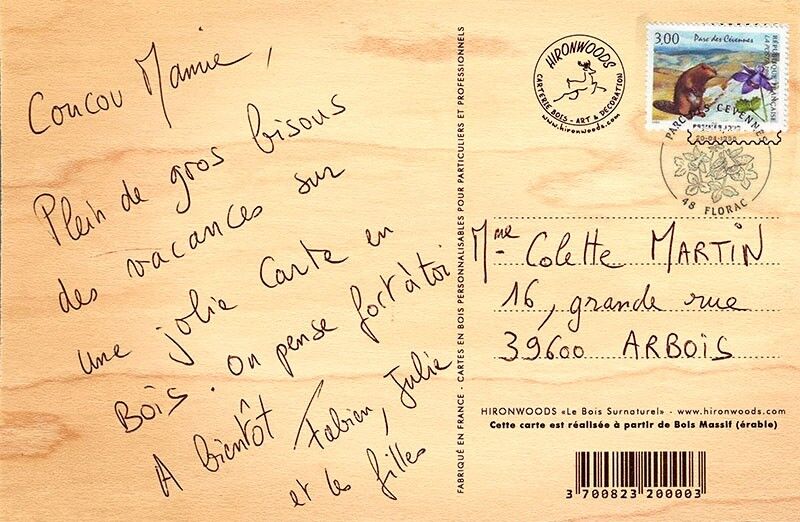 Coucou Mamie,
Plein de gros bisous
des vacances sur
une jolie Carte en
BOIS. On pense fort à toi
A bientôt Fabien, Julie
et les filles
FABRIQUÉ EN FRANCE - CARTES EN BOIS PERSONNALISABLES POUR PARTICULIERS ET PROFESSIONNELS
HIRONWOODS
CARTERIE BOIS - ART & DÉCORATION
www.hironwoods.com
3,00 Parc des Cévennes
RÉPUBLIQUE FRANÇAISE
LA POSTE
PARC DES CÉVENNES
PREMIER JOUR
48 FLORAC
Mme Colette MARTIN
16, grande rue
39600 ARBOIS
HIRONWOODS «Le Bois Surnaturel» - www.hironwoods.com
Cette carte est réalisée à partir de Bois Massif (érable)
3 700823 200003